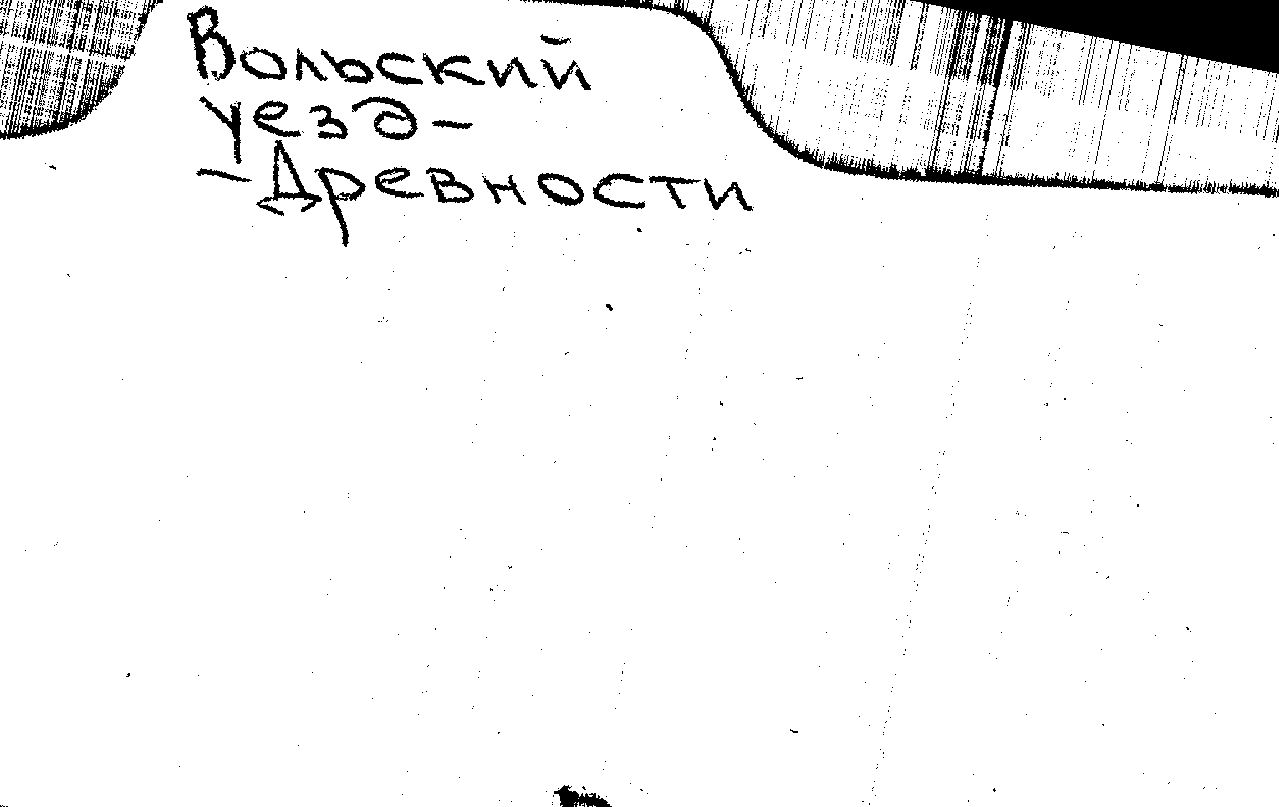 Вольский
уезд-
-Древности